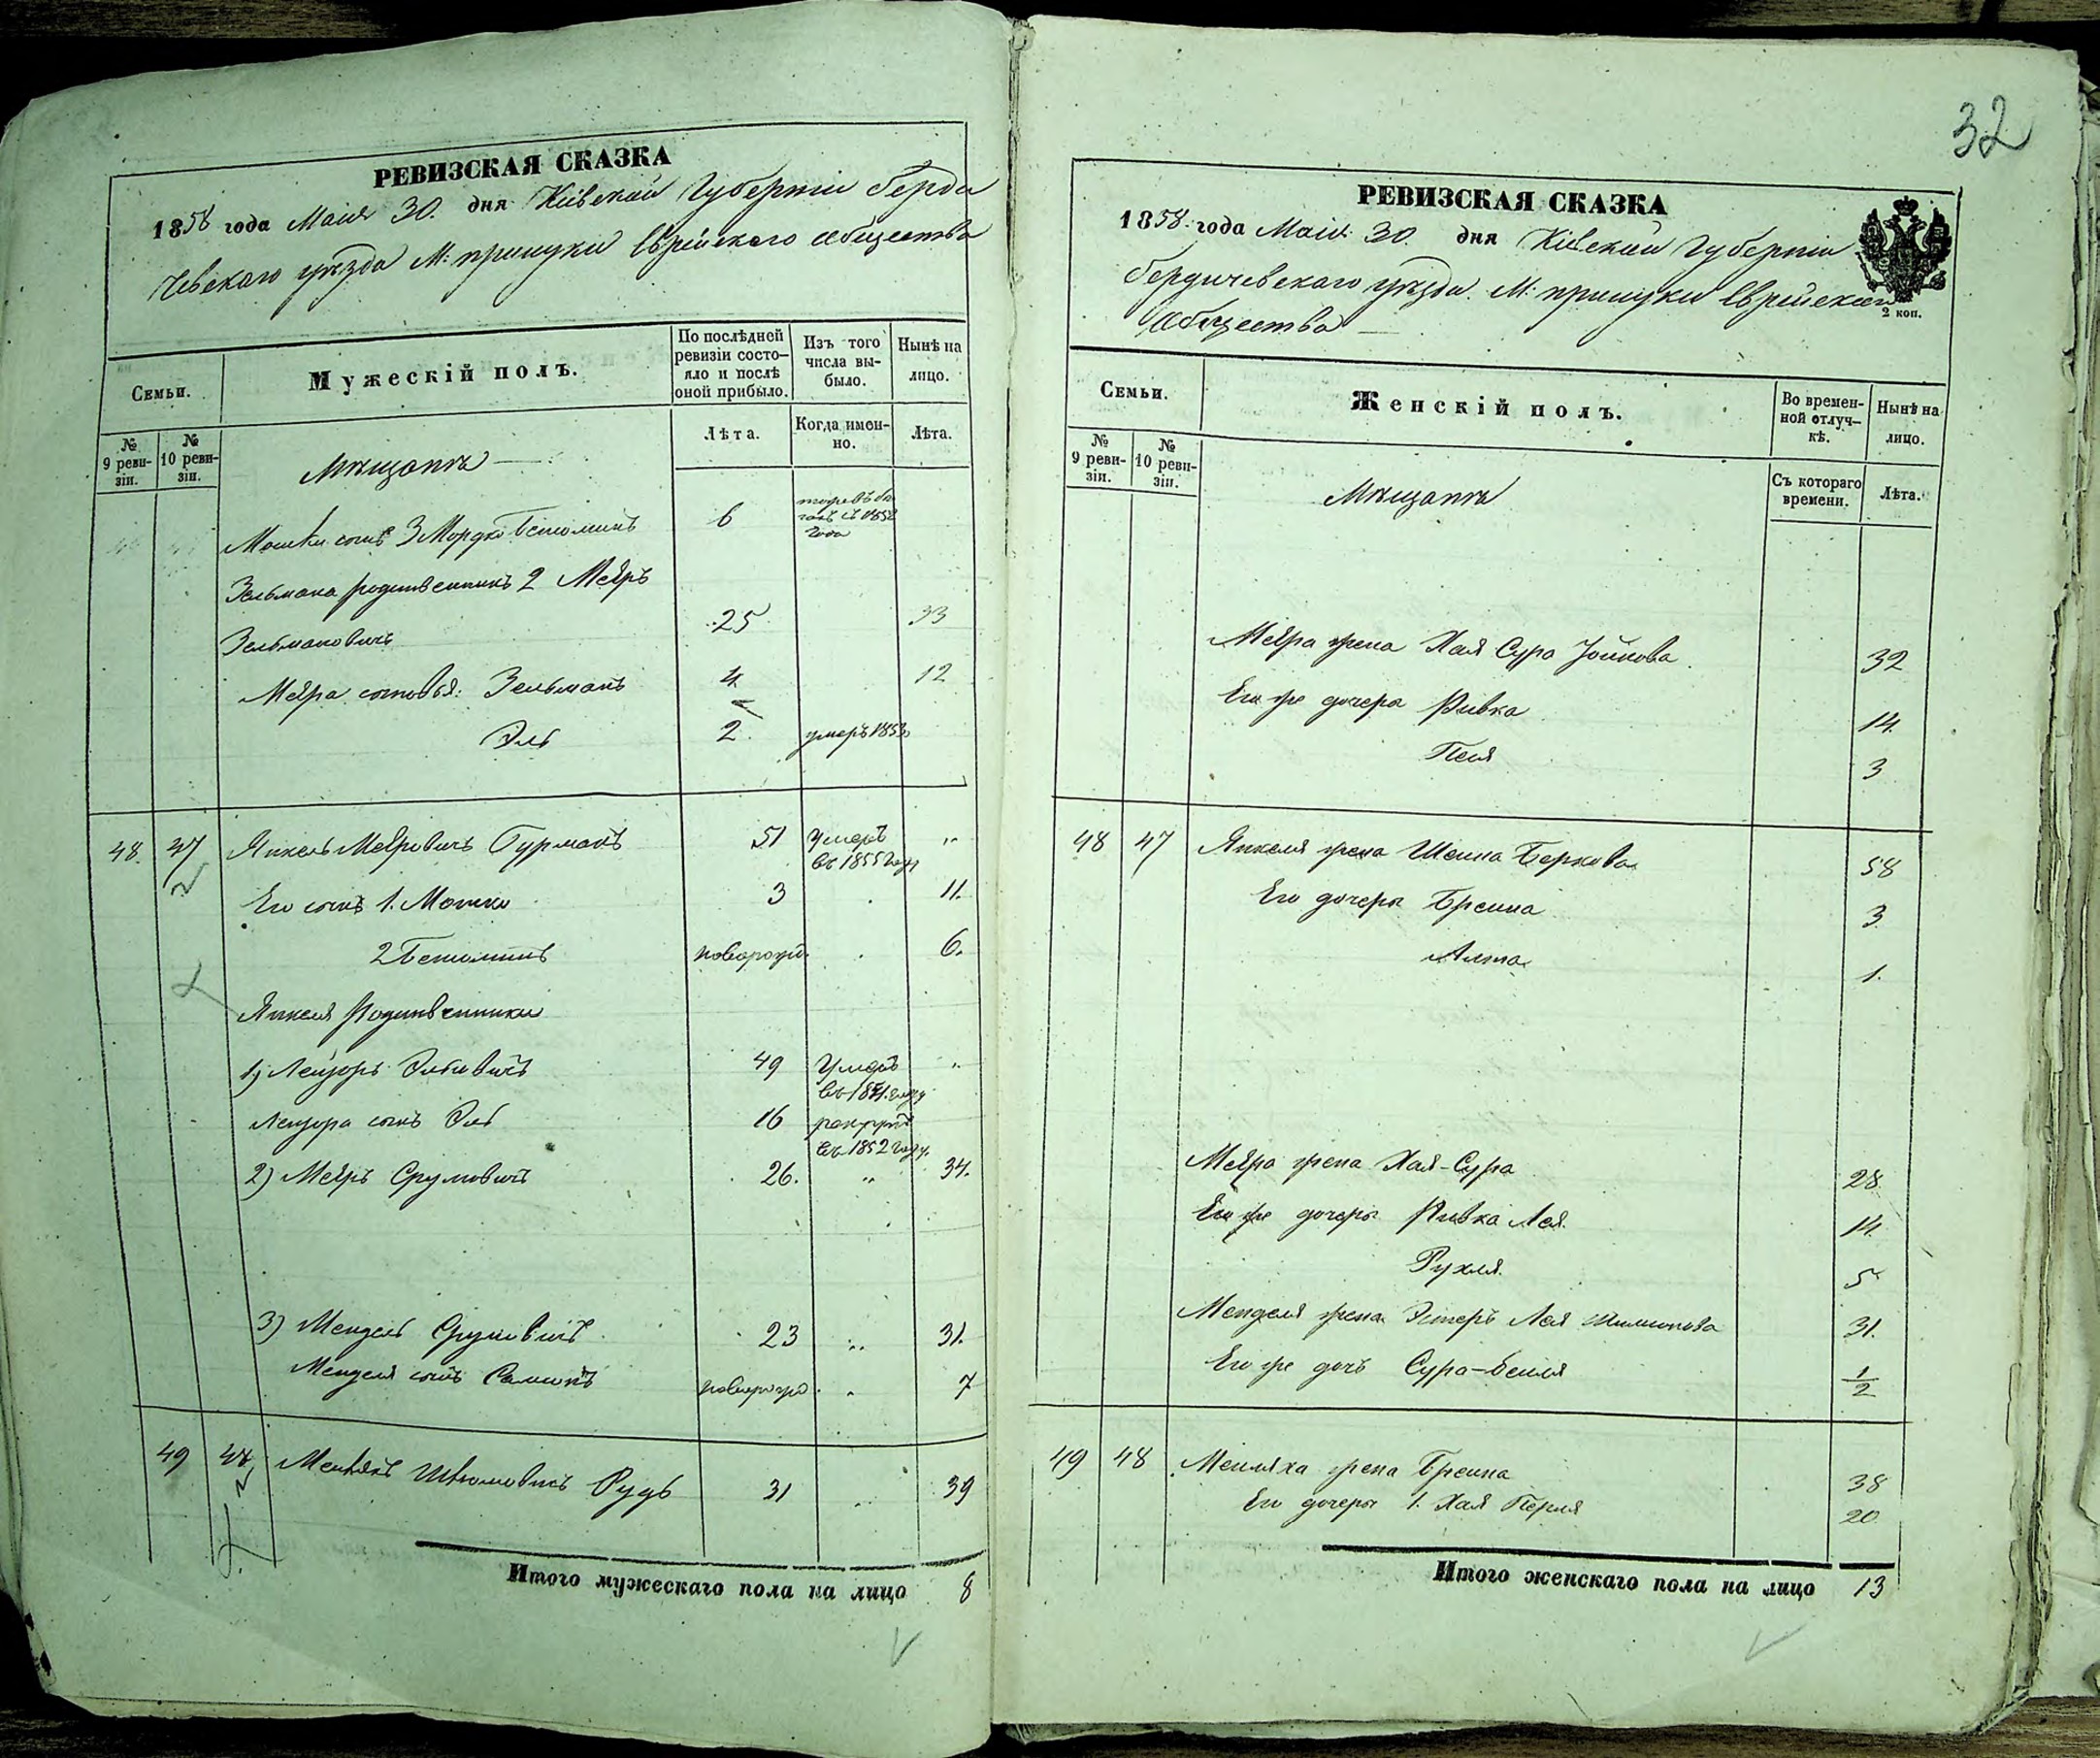 РЕВИЗСКАЯ СКАЗКА
1858 года Маія 30. дня Кіевской Губерніи Берди
чевскаго уѣзда М: прилуки Еврейскаго Общества
Семьи.
Мужескій полъ.
По послѣдней ревизіи состо-
яло и послѣ
оной прибыло.
Изъ того
числа вы-
было.
Нынѣ на
лицо.
№
9 реви-
зіи.
№
10 реви-
зіи.
Мѣщанъ
Лѣта.
Когда имен-
но.
Лѣта.
Мошки сынъ 3 Мордко Беніоминъ 6 1852
года
Зельмана родственникъ 2 Меѣръ
Зельмановичъ 25 33
Меѣра сыновья: Зельманъ 4 12
Эль 2. умеръ 1853
48. 47 Янкель Меѣровичъ Гурманъ 51 Умеръ „
въ 1855 году
Его сынъ 1. Мошко 3 11.
2 Беніоминъ новорожд. 6.
Янкеля Родственники
1) Лейзоръ Эльевичъ 49 Умеръ „
въ 1851 году
Лейзора сынъ Эль 16 рекрутъ
въ 1852 году.
2) Меѣръ Срулевичъ 26. „ 34.
3) Мендель Срулевичъ 23 „ 31.
Менделя сынъ новорожд „ 7
49 48 Рудь 31 „ 39
Итого мужескаго пола на лицо 8
32
РЕВИЗСКАЯ СКАЗКА
1858. года Маія 30. дня Кіевской Губерніи
Бердичевскаго уѣзда. М: прилуки Еврейскаго
Общества
2 коп.
Семьи.
Женскій полъ.
Во времен-
ной отлуч-
кѣ.
Нынѣ на
лицо.
№
9 реви-
зіи.
№
10 реви-
зіи.
Мѣщанъ
Съ котораго
времени.
Лѣта.
Меѣра жена Хая Сура 32
Его же дочери Ривка 14.
Песя 3
48 47 Янкеля жена Шейна Беркова 58
Его дочери Брейна 3
1.
Меѣра жена Хая-Сура 28
Его же дочери Ривка Лея 14.
Рухля 5
Менделя жена Эстеръ Лея 31.
Его же дочь Сура-Бейля 1/2
49 48 жена Брейна 38
Его дочери 1. Хая Перля 20
Итого женскаго пола на лицо 13